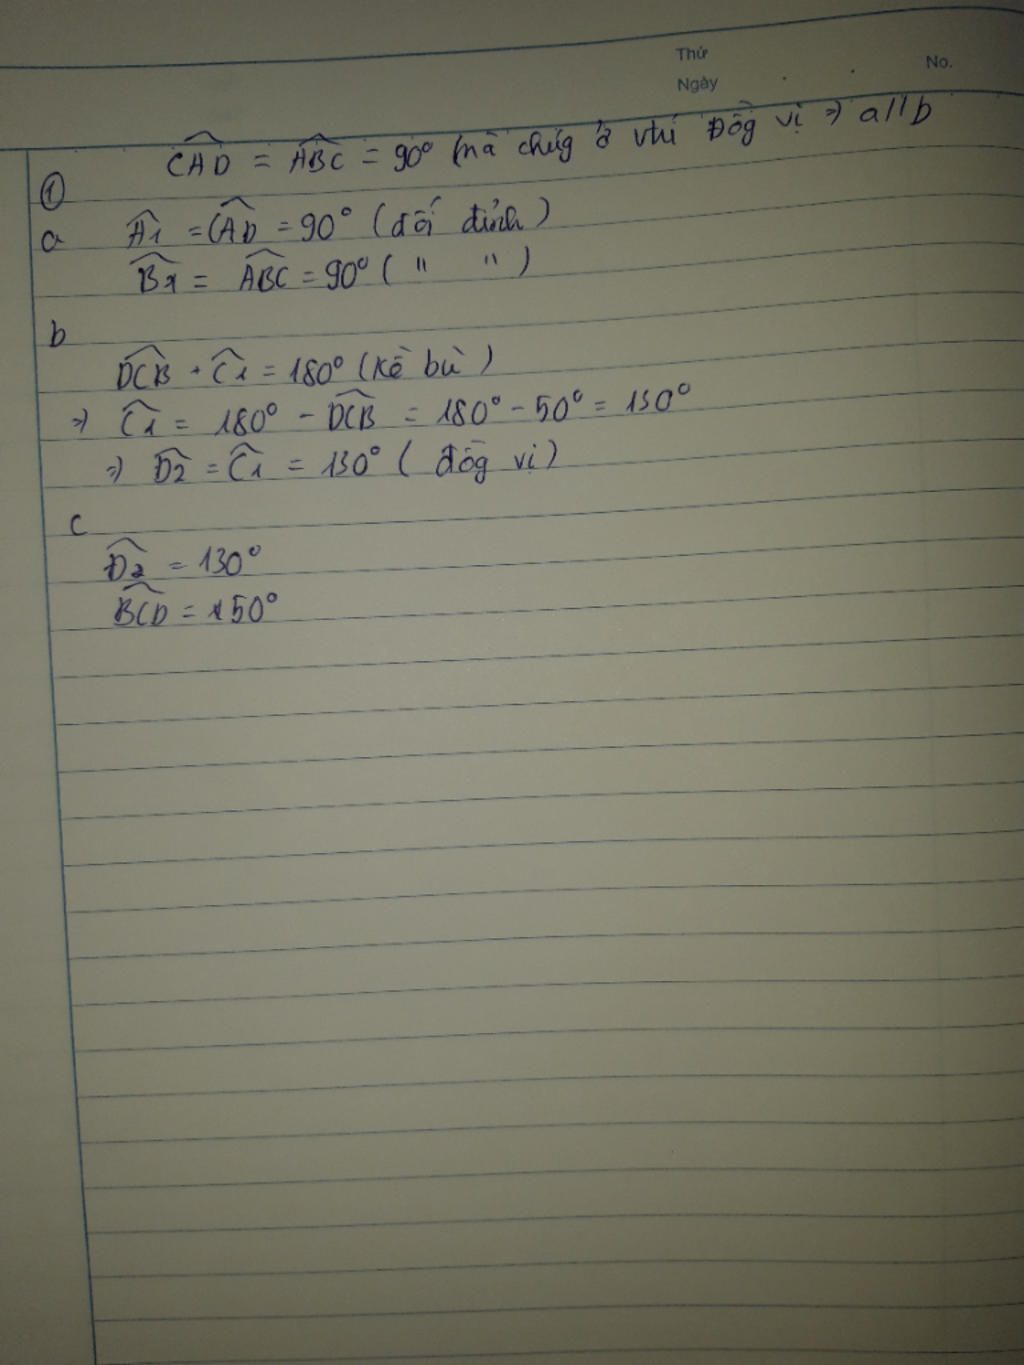 Thứ
Ngày
No.
CAD = ABC = 90° (mà chúg ở vhí Đồg vị => a//b
①
a Â1 = CAD = 90° (đối đỉnh)
B1 = ABC = 90° ( " " )
b
DCB + C1 = 180° (kề bù)
=> C1 = 180° - DCB = 180° - 50° = 130°
=> D2 = C1 = 130° ( đồg vị)
c
D2 = 130°
BCD = 50°